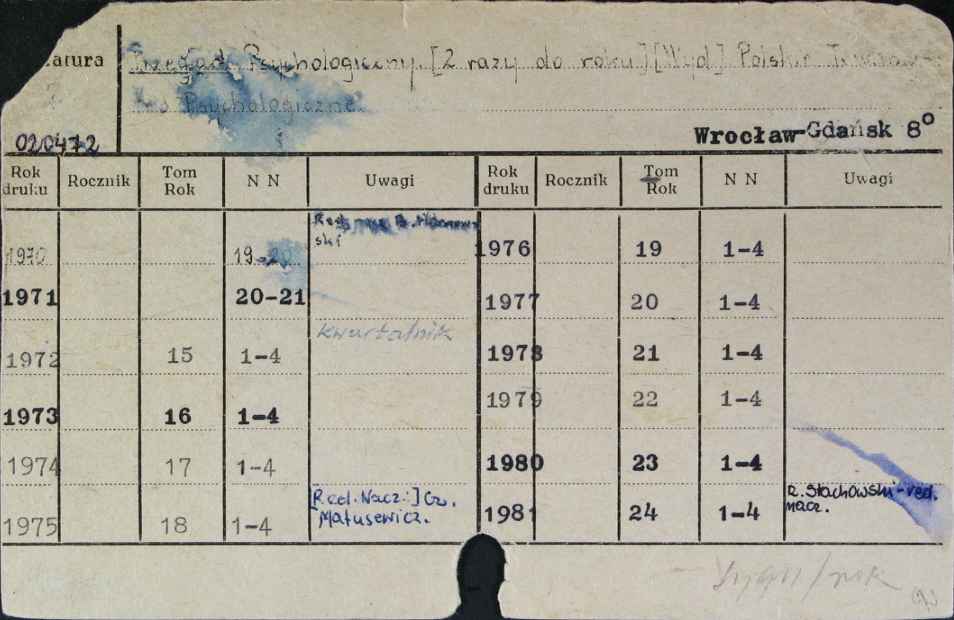 atura
Przegląd Psychologiczny. [2 razy do roku] [Wyd] Polskie
Psychologiczne.
020472
Wrocław-Gdańsk 8°
Rok druku Rocznik Tom Rok N N Uwagi Rok druku Rocznik Tom Rok N N Uwagi
Red.
ski
1970 19-20
1976 19 1-4
1971 20-21
1977 20 1-4
kwartalnik
1972 15 1-4
1978 21 1-4
1973 16 1-4
1979 22 1-4
1974 17 1-4
1980 23 1-4
[Red. Nacz.:] Cz.
Matusewicz.
1975 18 1-4
1981 24 1-4
R. Stachowski-red.
nacz.